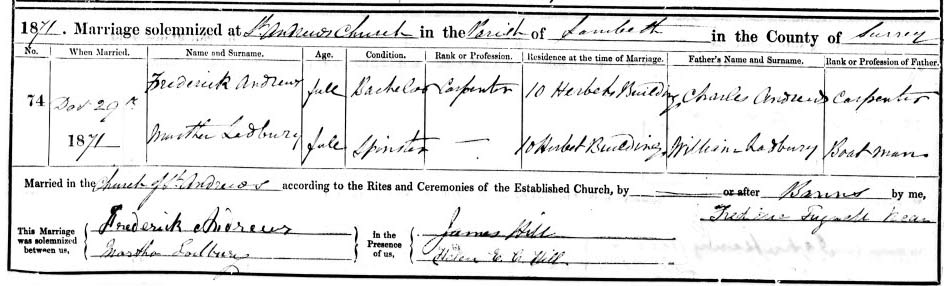 1871. Marriage solemnized at St Andrews Church in the Parish of Lambeth in the County of Surrey
No. When Married. Name and Surname. Age. Condition. Rank or Profession. Residence at the time of Marriage. Father's Name and Surname. Rank or Profession of Father.
Frederick Andrews full Bachelor Carpenter 10 Herbets Building Charles Andrews Carpenter
74 29th
1871 Marther Ledbury full Spinster — 10 Herbet Buildings William Ladbury Boat man
Married in the Church of St Andrews according to the Rites and Ceremonies of the Established Church, by — or after Banns by me,
Tugwell
This Marriage was solemnized between us, Frederick Andrews In the Presence of us, James Hill
Martha Ledbury Helen E. C. Hill